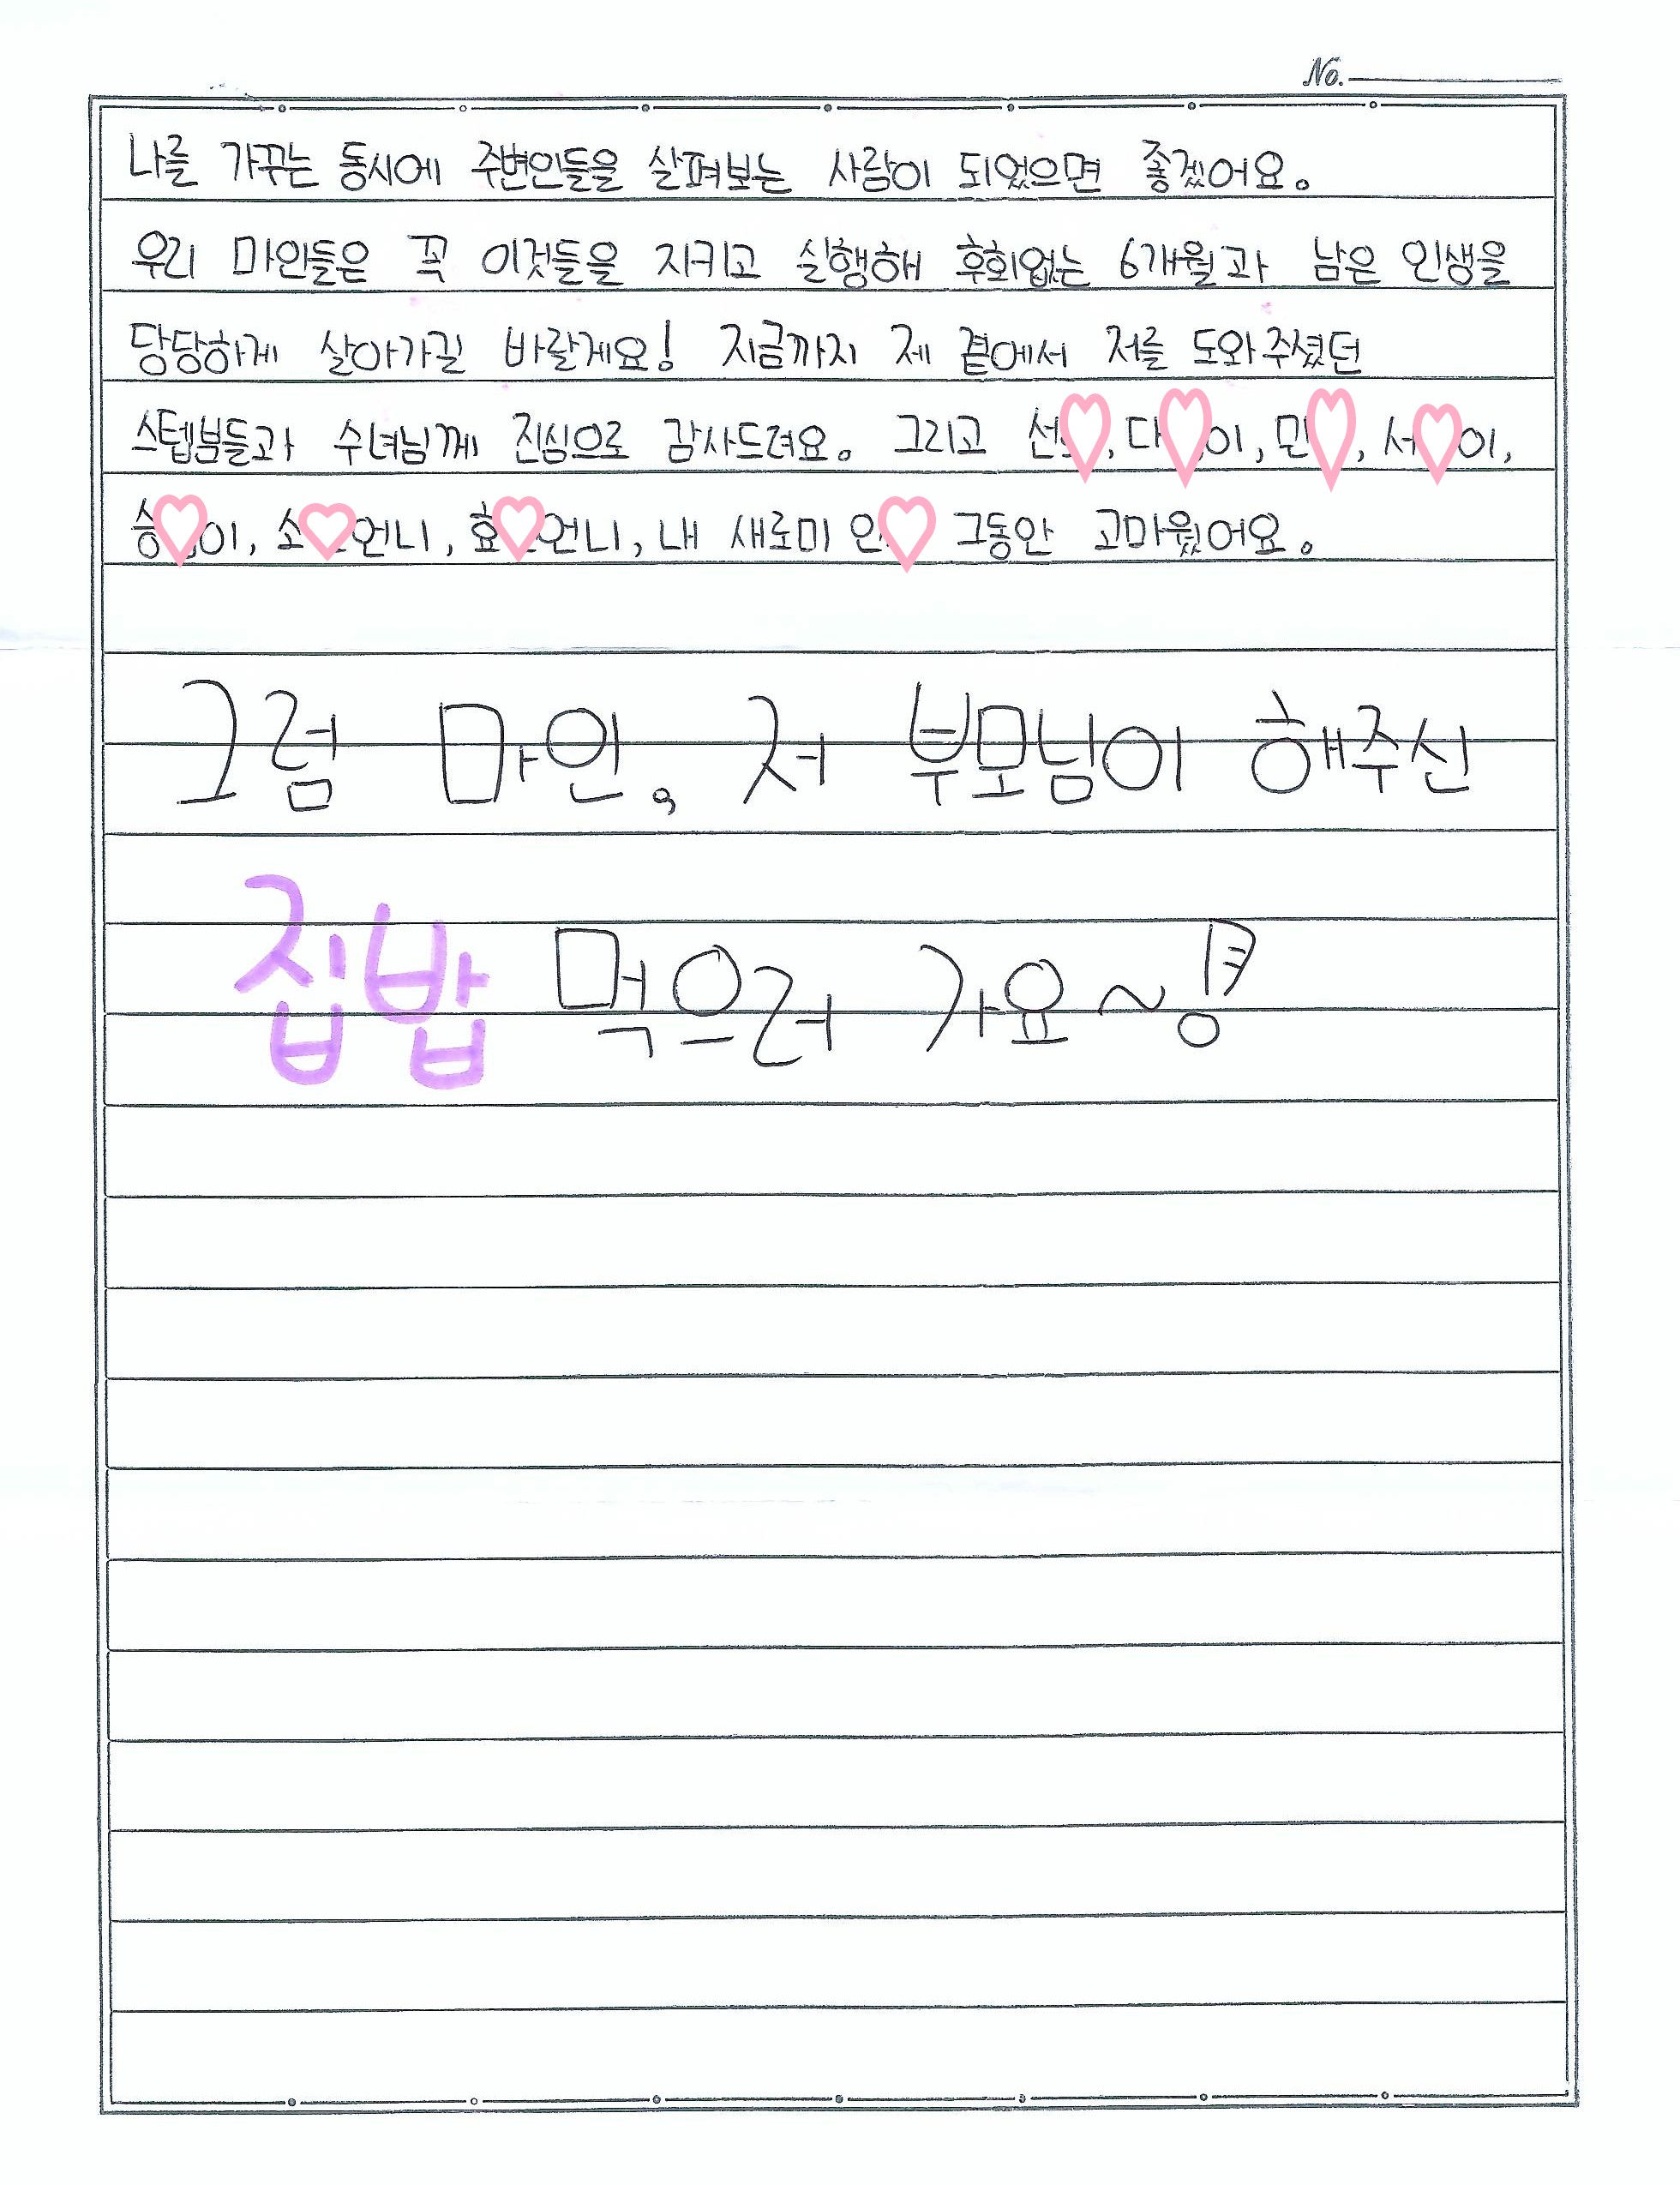 No.
나를 가꾸는 동시에 주변인들을 살펴보는 사람이 되었으면 좋겠어요.
우리 마인들은 꼭 이것들을 지키고 실행해 후회없는 6개월과 남은 인생을
당당하게 살아가길 바랄게요! 지금까지 제 곁에서 저를 도와주셨던
스텝분들과 수녀님께 진심으로 감사드려요. 그리고 선♡, 다♡이, 민♡, 서♡이,
승♡이, 소♡언니, 효♡언니, 내 새로미 인♡ 그동안 고마웠어요.
그럼 마인, 저 부모님이 해주신
집밥 먹으러 가요~!